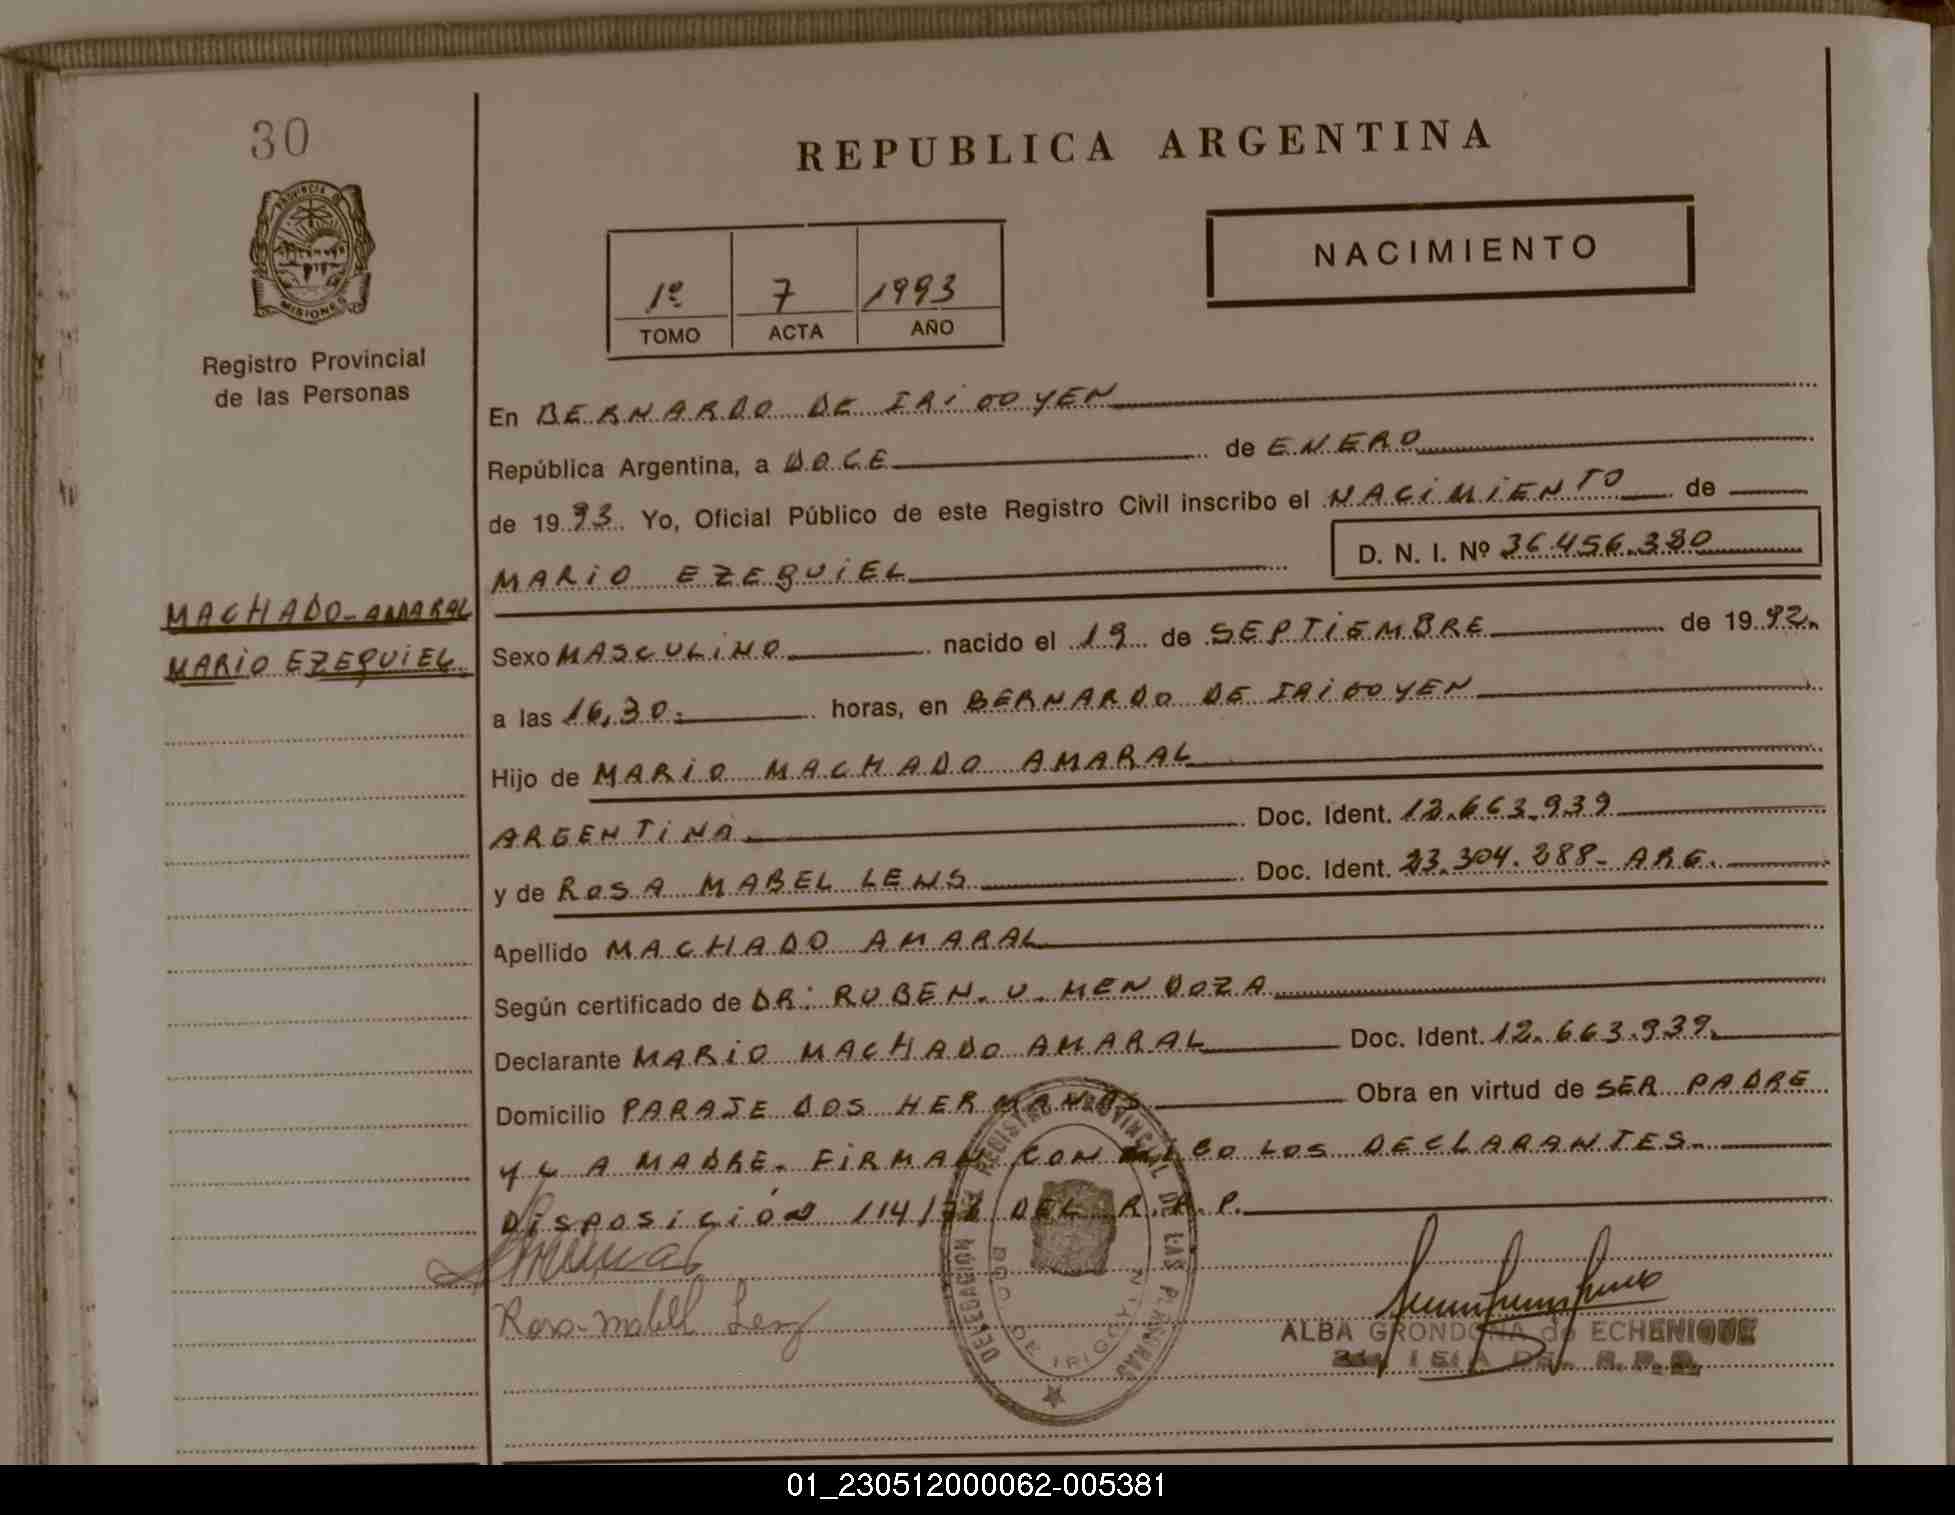 30
PROVINCIA DE
MISIONES
Registro Provincial
de las Personas
REPUBLICA ARGENTINA
NACIMIENTO
1º 7 1993
TOMO ACTA AÑO
En BERNARDO DE IRIGOYEN
República Argentina, a DOCE de ENERO
de 1993. Yo, Oficial Público de este Registro Civil inscribo el NACIMIENTO de
MARIO EZEQUIEL D. N. I. Nº 36.456.380
MACHADO-AMARAL
MARIO EZEQUIEL.
Sexo MASCULINO nacido el 19 de SEPTIEMBRE de 1992.
a las 16,30. horas, en BERNARDO DE IRIGOYEN
Hijo de MARIO MACHADO AMARAL
ARGENTINA. Doc. Ident. 12.663.939
y de ROSA MABEL LENS Doc. Ident. 23.304.288- ARG.
Apellido MACHADO AMARAL
Según certificado de DR: RUBEN. U. MENDOZA
Declarante MARIO MACHADO AMARAL Doc. Ident. 12.663.939.
Domicilio PARAJE DOS HERMANAS Obra en virtud de SER PADRE
Y LA MADRE. FIRMAN CON LOS DECLARANTES.
DISPOSICIÓN 114/78 DEL R.P.P.
Rosa mabel Lens
DELEGACION REGISTRO PROVINCIAL DE LAS PERSONAS
BDO DE IRIGOYEN
ALBA GRONDONA de ECHENIQUE
R.P.P.
01_230512000062-005381